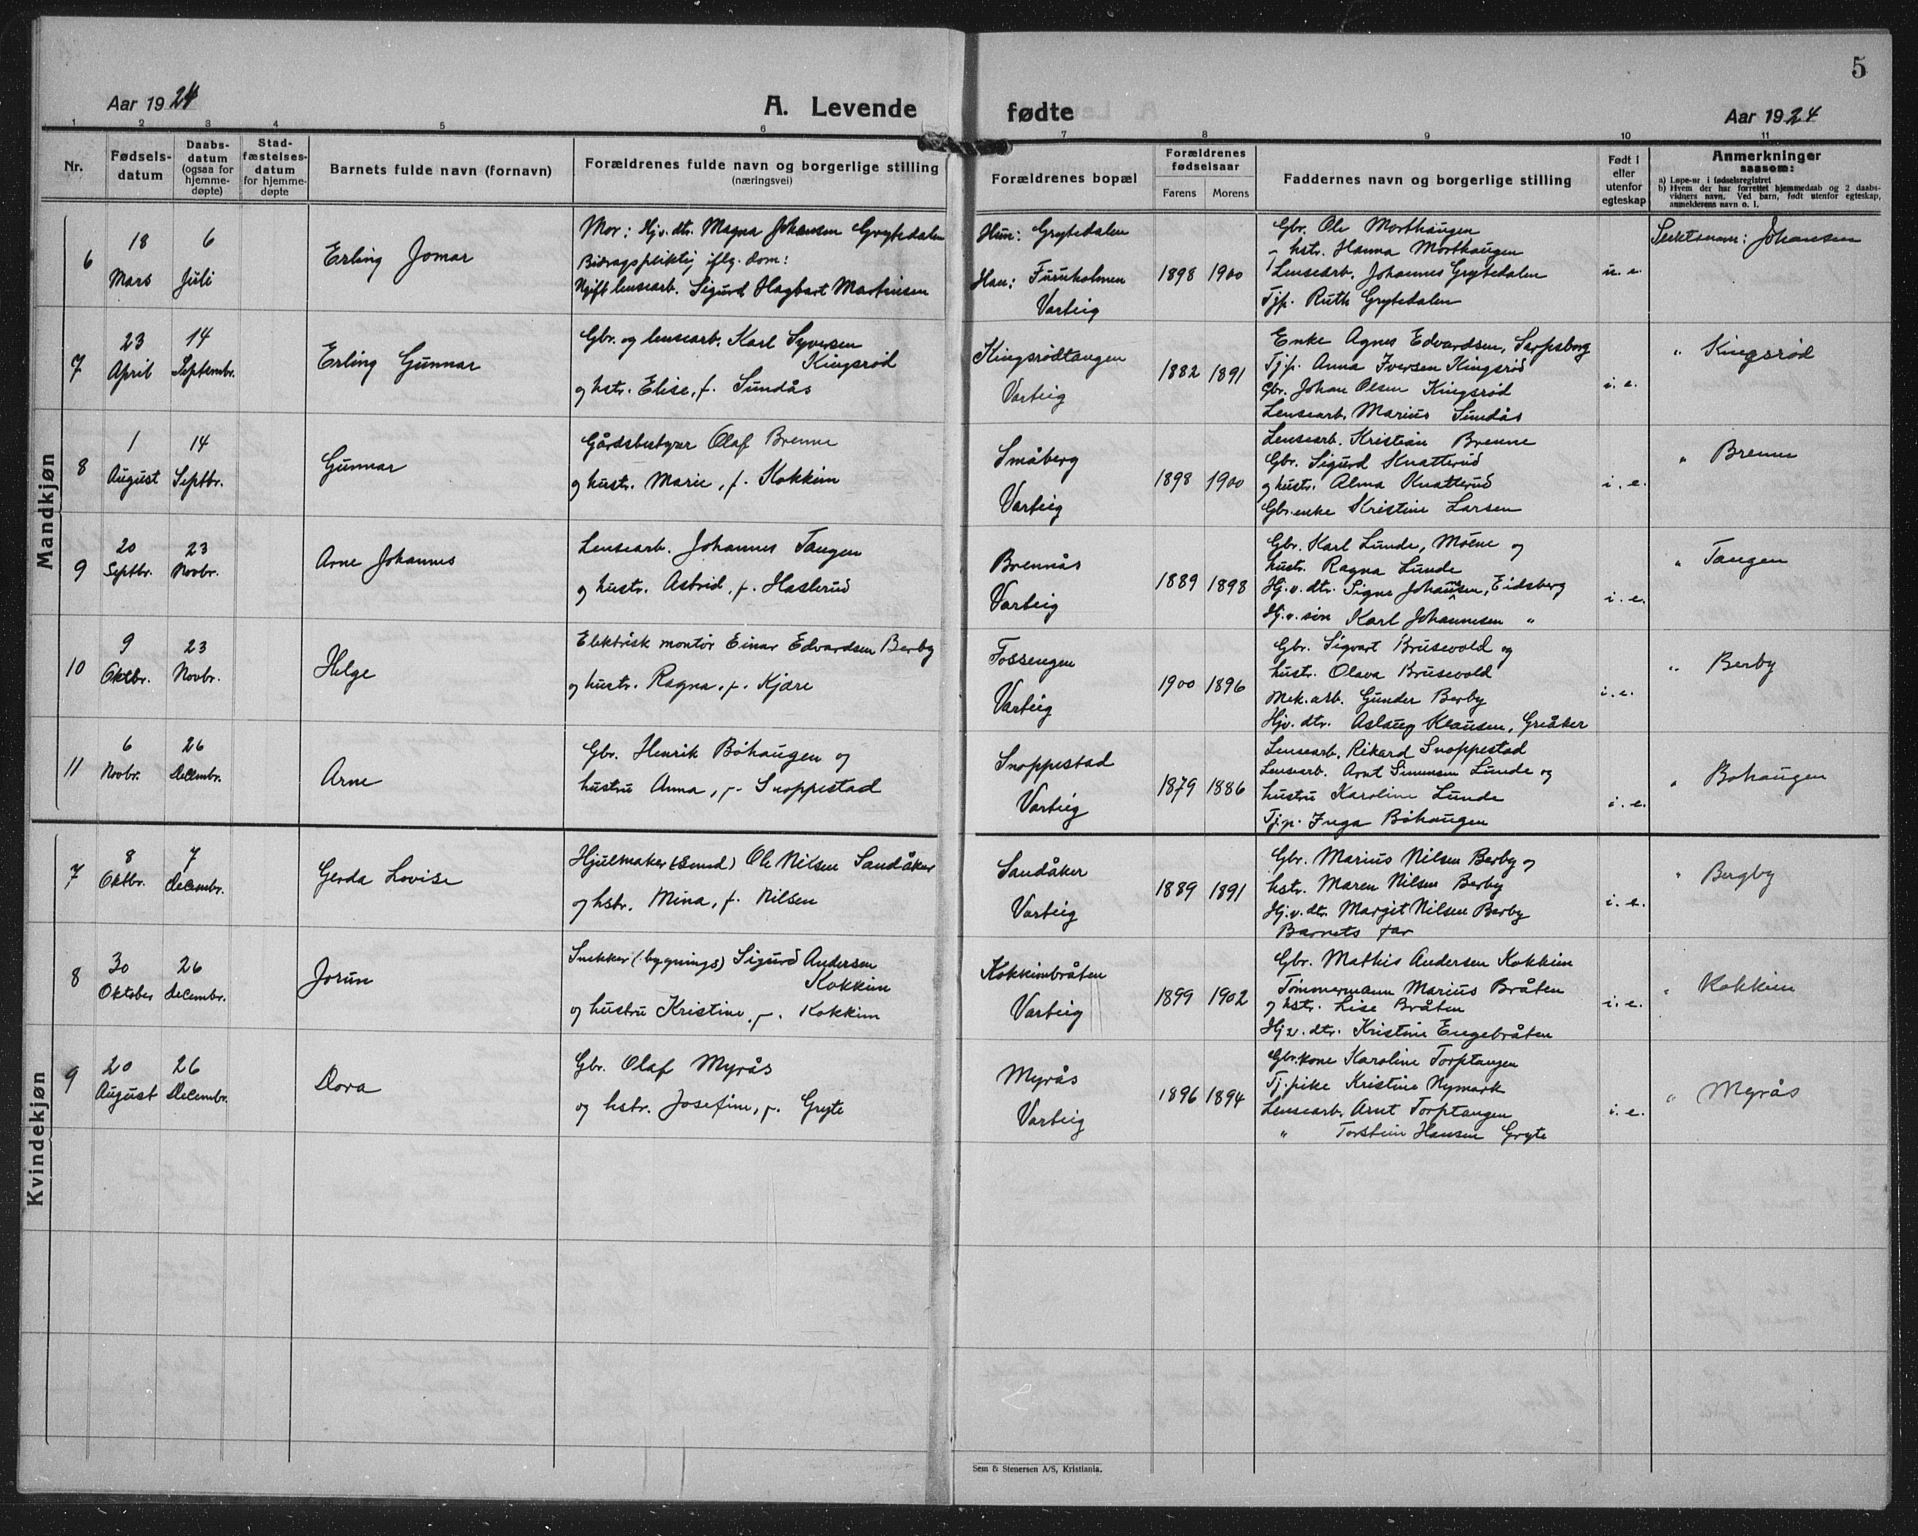 Aar 1924
A. Levende
fødte
Aar 1924
5
1 2 3 4 5 6 7 8 9 10 11
Nr.
Fødsels-
datum
Daabs-
datum
(ogsaa for
hjemme-
døpte)
Stad-
fæstelses-
datum
for hjemme-
døpte
Barnets fulde navn (fornavn)
Forældrenes fulde navn og borgerlige stilling
(næringsvei)
Forældrenes bopæl
Forældrenes
fødselsaar
Farens Morens
Faddernes navn og borgerlige stilling
Født i
eller
utenfor
egteskap
Anmerkninger
saasom:
a) Løpe-nr i fødselsregistret
b) Hvem der har forrettet hjemmedaab og 2 daabs-
vidners navn. Ved barn, født utenfor egteskap,
anmelderens navn o. l.
Mandkjøn
6
18
Mars
6
Juli
Erling Jomar
Mor: Hjv. dtr. Magna Johansen Grytedalen
Bidragspliktig iflg. dom:
Ugift lensearb. Sigurd Hagbart Martinsen
Hun: Grytedalen
Han: Furuholmen
Varteig
1898 1900
Gbr. Ole Morthaugen
hstr. Hanna Morthaugen
Lensearb. Johannes Grytedalen
Tjp. Ruth Grytedalen
u. e.
Sektsnavn: Johansen
7
23
April
14
Septembr.
Erling Gunnar
Gbr. og lensearb. Karl Syversen
Kingsrød
og hstr. Elise, f. Sundås
Kingsrødtangen
Varteig
1882 1891
Enke Agnes Edvardsen, Sarpsborg
Tj.p. Anna Iversen Kingsrød
Gbr. Johan Olsen Kingsrød
Lensearb. Marius Sundås
i. e.
" Kingsrød
8
1
August
14
Septbr.
Gunnar
Gårdsbestyrer Olaf Brenne
og hustr. Marie, f. Kokkim
Småberg
Varteig
1898 1900
Lensearb. Kristian Brenne
Gbr. Sigurd Knatterud
og hustr. Alma Knatterud
Gbr.enke Kristine Larsen
i. e.
" Brenne
9
20
Septbr.
23
Novbr.
Arne Johannes
Lensearb. Johannes Tangen
og hustr. Astrid, f. Haslerud
Brennås
Varteig
1889 1898
Gbr. Karl Lunde, Moene og
hustr. Ragna Lunde
Hj.v. dtr. Signe Johannesen, Eidsberg
Hj.v. søn Karl Johannesen "
i. e.
" Tangen
10
9
Oktbr.
23
Novbr.
Helge
Elektrisk montør Einar Edvardsen Berby
og hustr. Ragna, f. Kjære
Fossengen
Varteig
1900 1896
Gbr. Sigvart Brusevold og
hustr. Olava Brusevold
Mek. arb. Gunder Berby
Hjv. dtr. Aslaug Klausen, Greåker
i. e.
" Berby
11
6
Novbr.
26
Decembr.
Arne
Gbr. Henrik Bøhaugen og
hustru Anna, f. Snoppestad
Snoppestad
Varteig
1879 1886
Lensearb. Rikard Snoppestad
Lensearb. Arnt Simensen Lunde og
hustru Karoline Lunde
Tj.p. Inga Bøhaugen
i. e.
" Bøhaugen
Kvindekjøn
7
8
Oktbr.
7
Decembr.
Gerda Lovise
Hjulmaker (Smed) Ole Nilsen Sandåker
og hstr. Mina, f. Nilsen
Sandåker
Varteig
1889 1891
Gbr. Marius Nilsen Berby og
hstr. Maren Nilsen Berby
Hj.v. dtr. Margit Nilsen Berby
Barnets far
i. e.
" Bergby
8
30
Oktober
26
Decembr.
Jorun
Snekker (bygnings) Sigurd Andersen
Kokkim
og hustru Kristine, f. Kokkim
Kokkimbråten
Varteig
1899 1902
Gbr. Mathis Andersen Kokkim
Tømmermann Marius Bråten
og hstr. Lise Bråten
Hjv. dtr. Kristine Engebråten
i. e.
" Kokkim
9
20
August
26
Decembr.
Dora
Gbr. Olaf Myrås
og hstr. Josefine, f. Gryte
Myrås
Varteig
1896 1894
Gbr.kone Karoline Torptangen
Tj.pike Kristine Nymark
Lensearb. Arnt Torptangen
" Torstein Hansen Gryte
i. e.
" Myrås
Sem & Stenersen A/S, Kristiania.